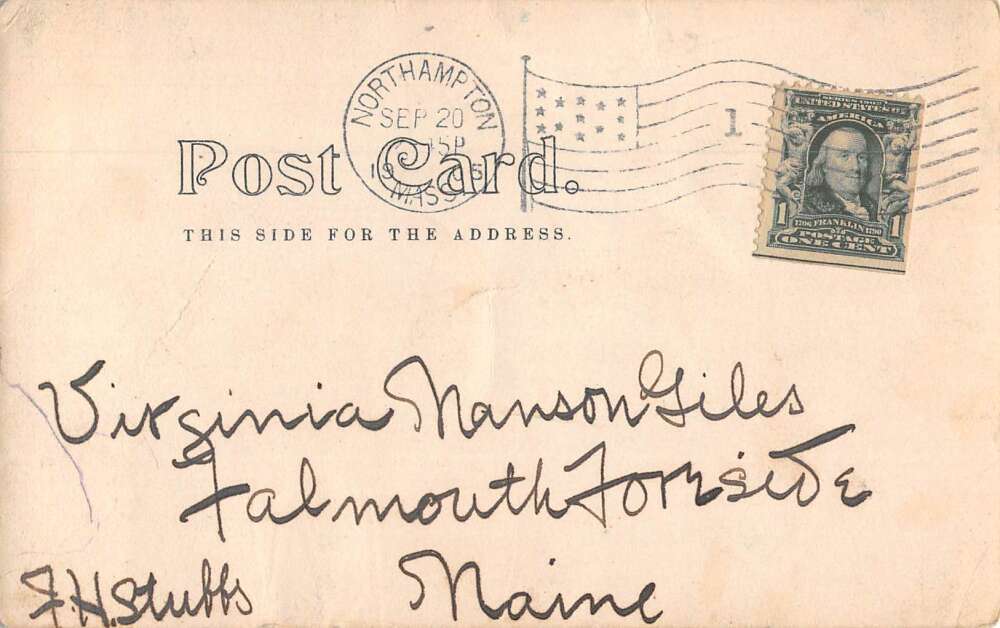 NORTHAMPTON
SEP 20
MASS.
1
SERIES 1902
UNITED STATES OF
AMERICA
1 1706 FRANKLIN 1790 1
POSTAGE
ONE CENT
Post Card.
THIS SIDE FOR THE ADDRESS.
Virginia Manson Giles
Falmouth Foreside
F.H. Stubbs Maine